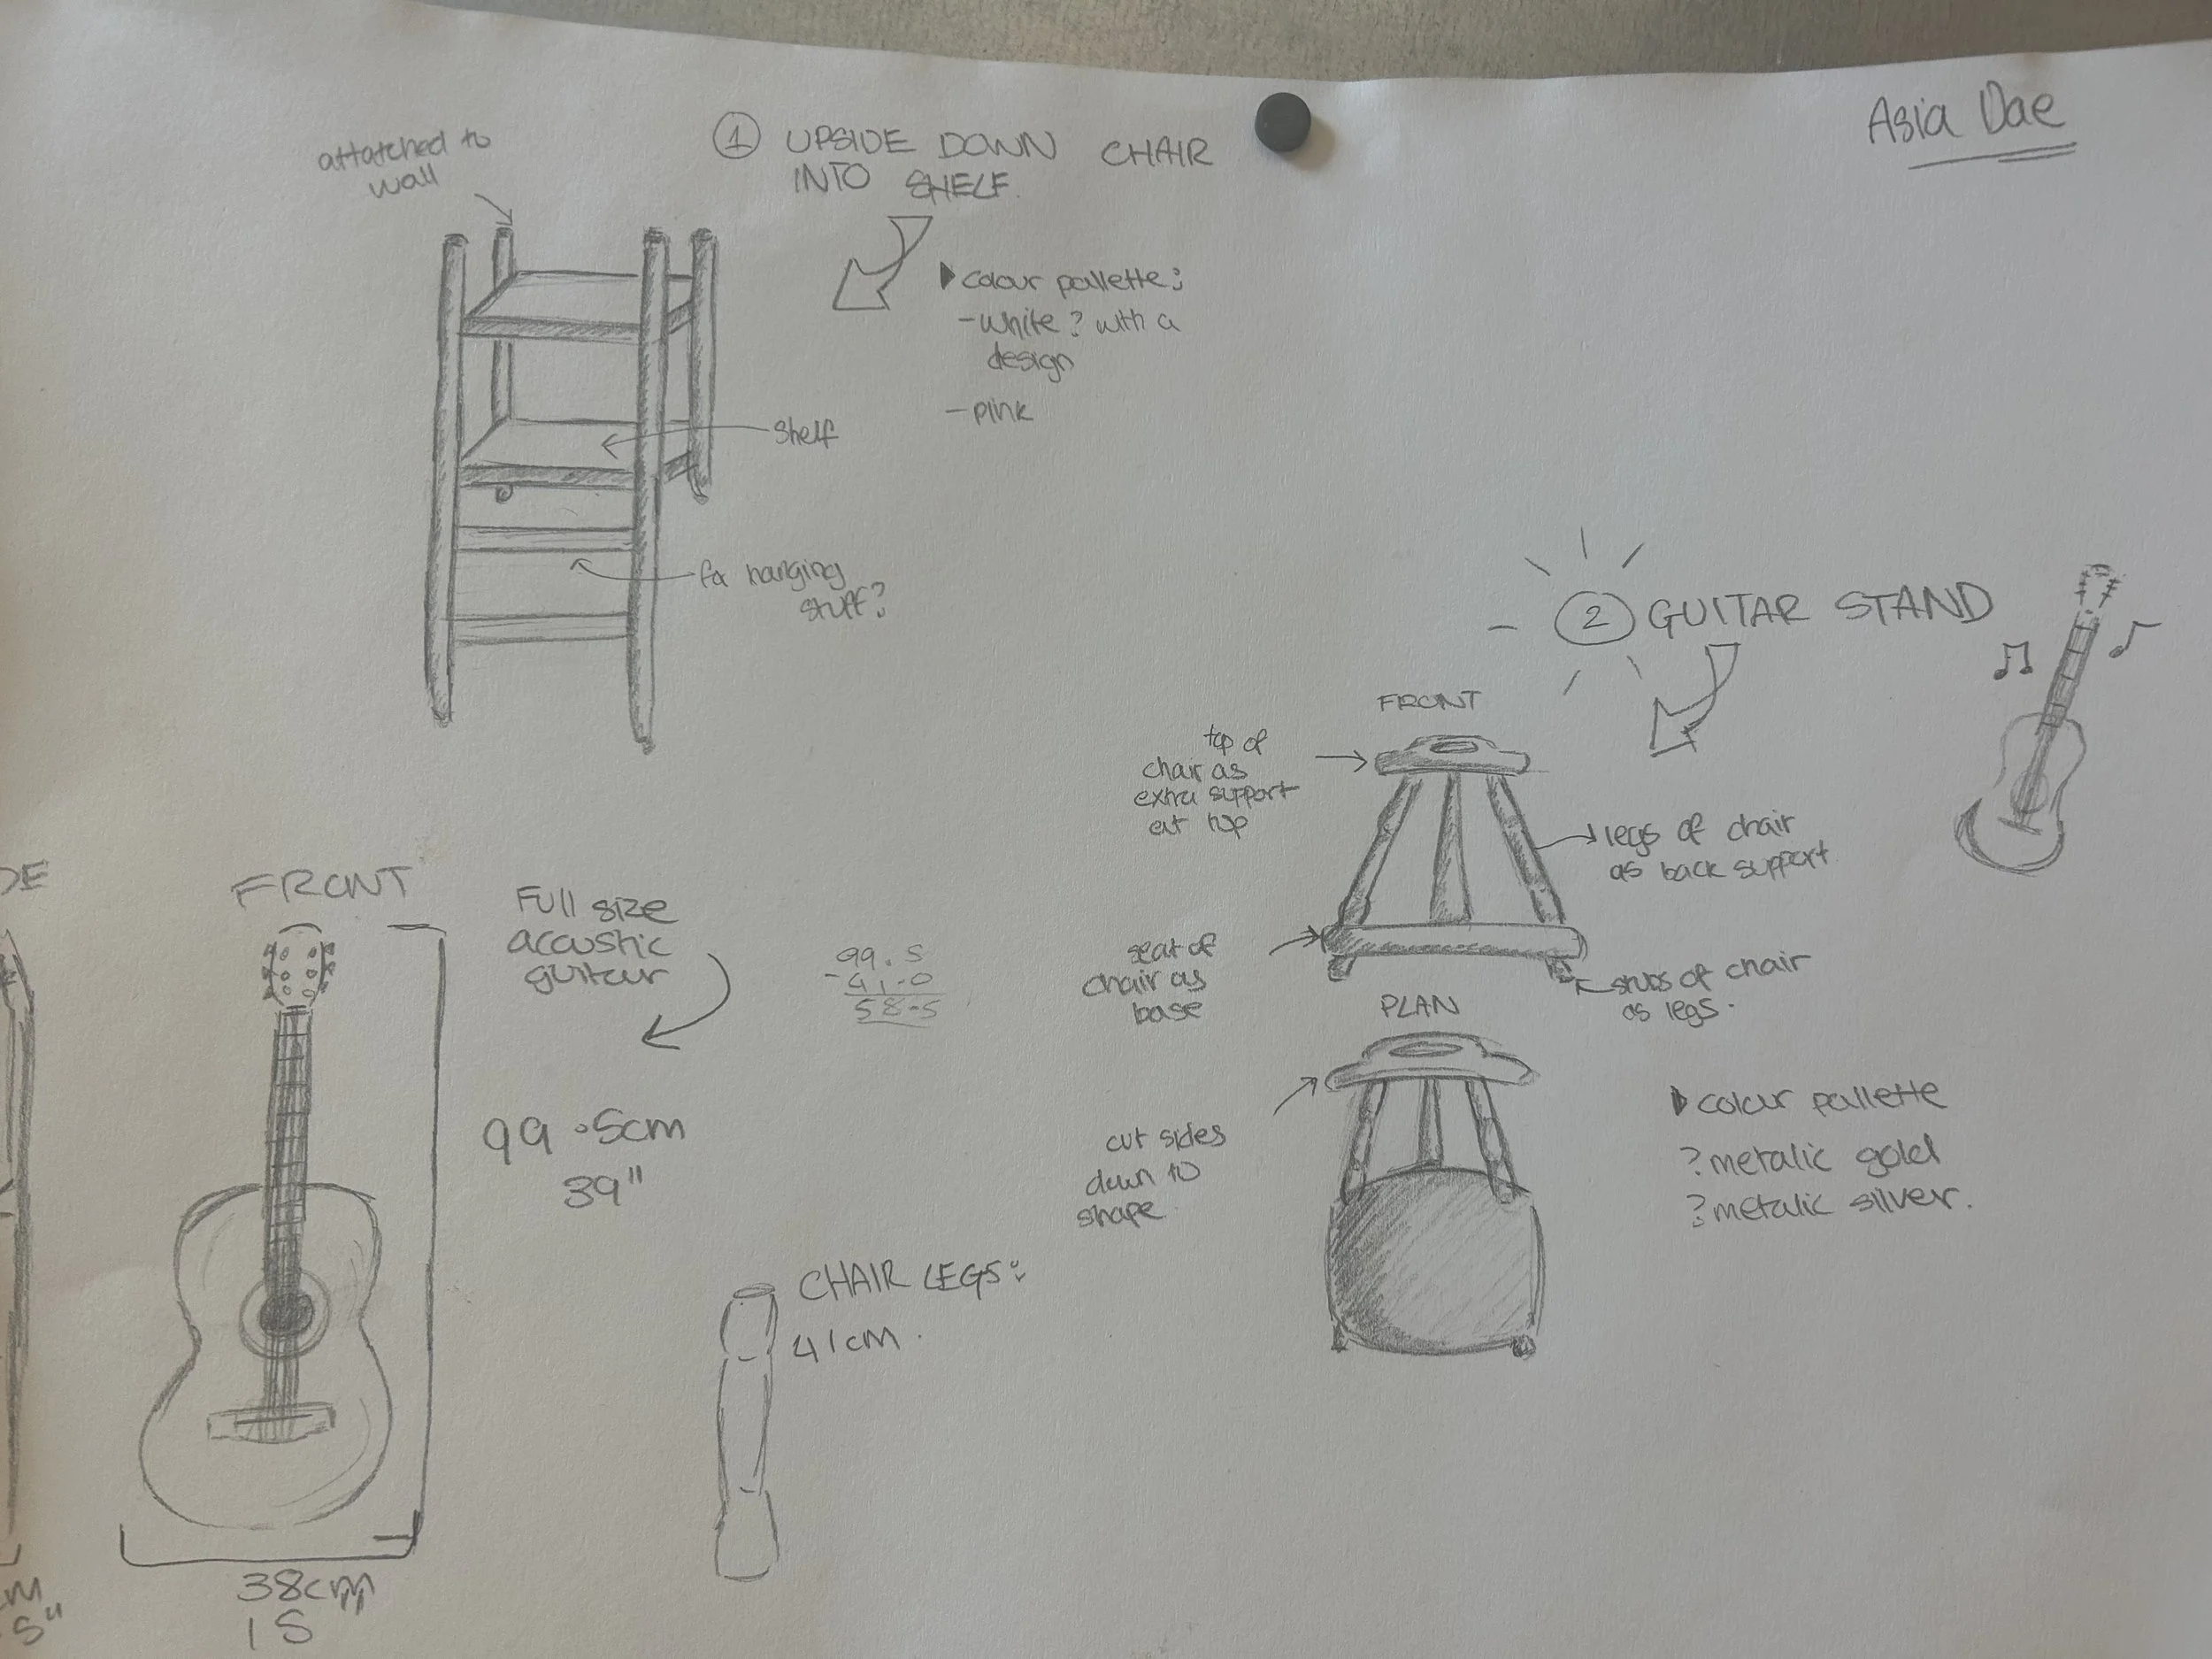 Asia Dae
attatched to
wall
① UPSIDE DOWN CHAIR
INTO SHELF.
colour pallette:
- white? with a
design
- pink
shelf
for hanging
stuff?
② GUITAR STAND
FRONT
top of
chair as
extra support
at top
legs of chair
as back support
seat of
chair as
base
stubs of chair
as legs.
PLAN
cut sides
down to
shape
colour pallette
? metalic gold
? metalic silver.
DE
FRONT
Full size
acoustic
guitar
99.5
- 41.0
58.5
99.5cm
39"
CHAIR LEGS:
41cm.
38cm
15
m
5"